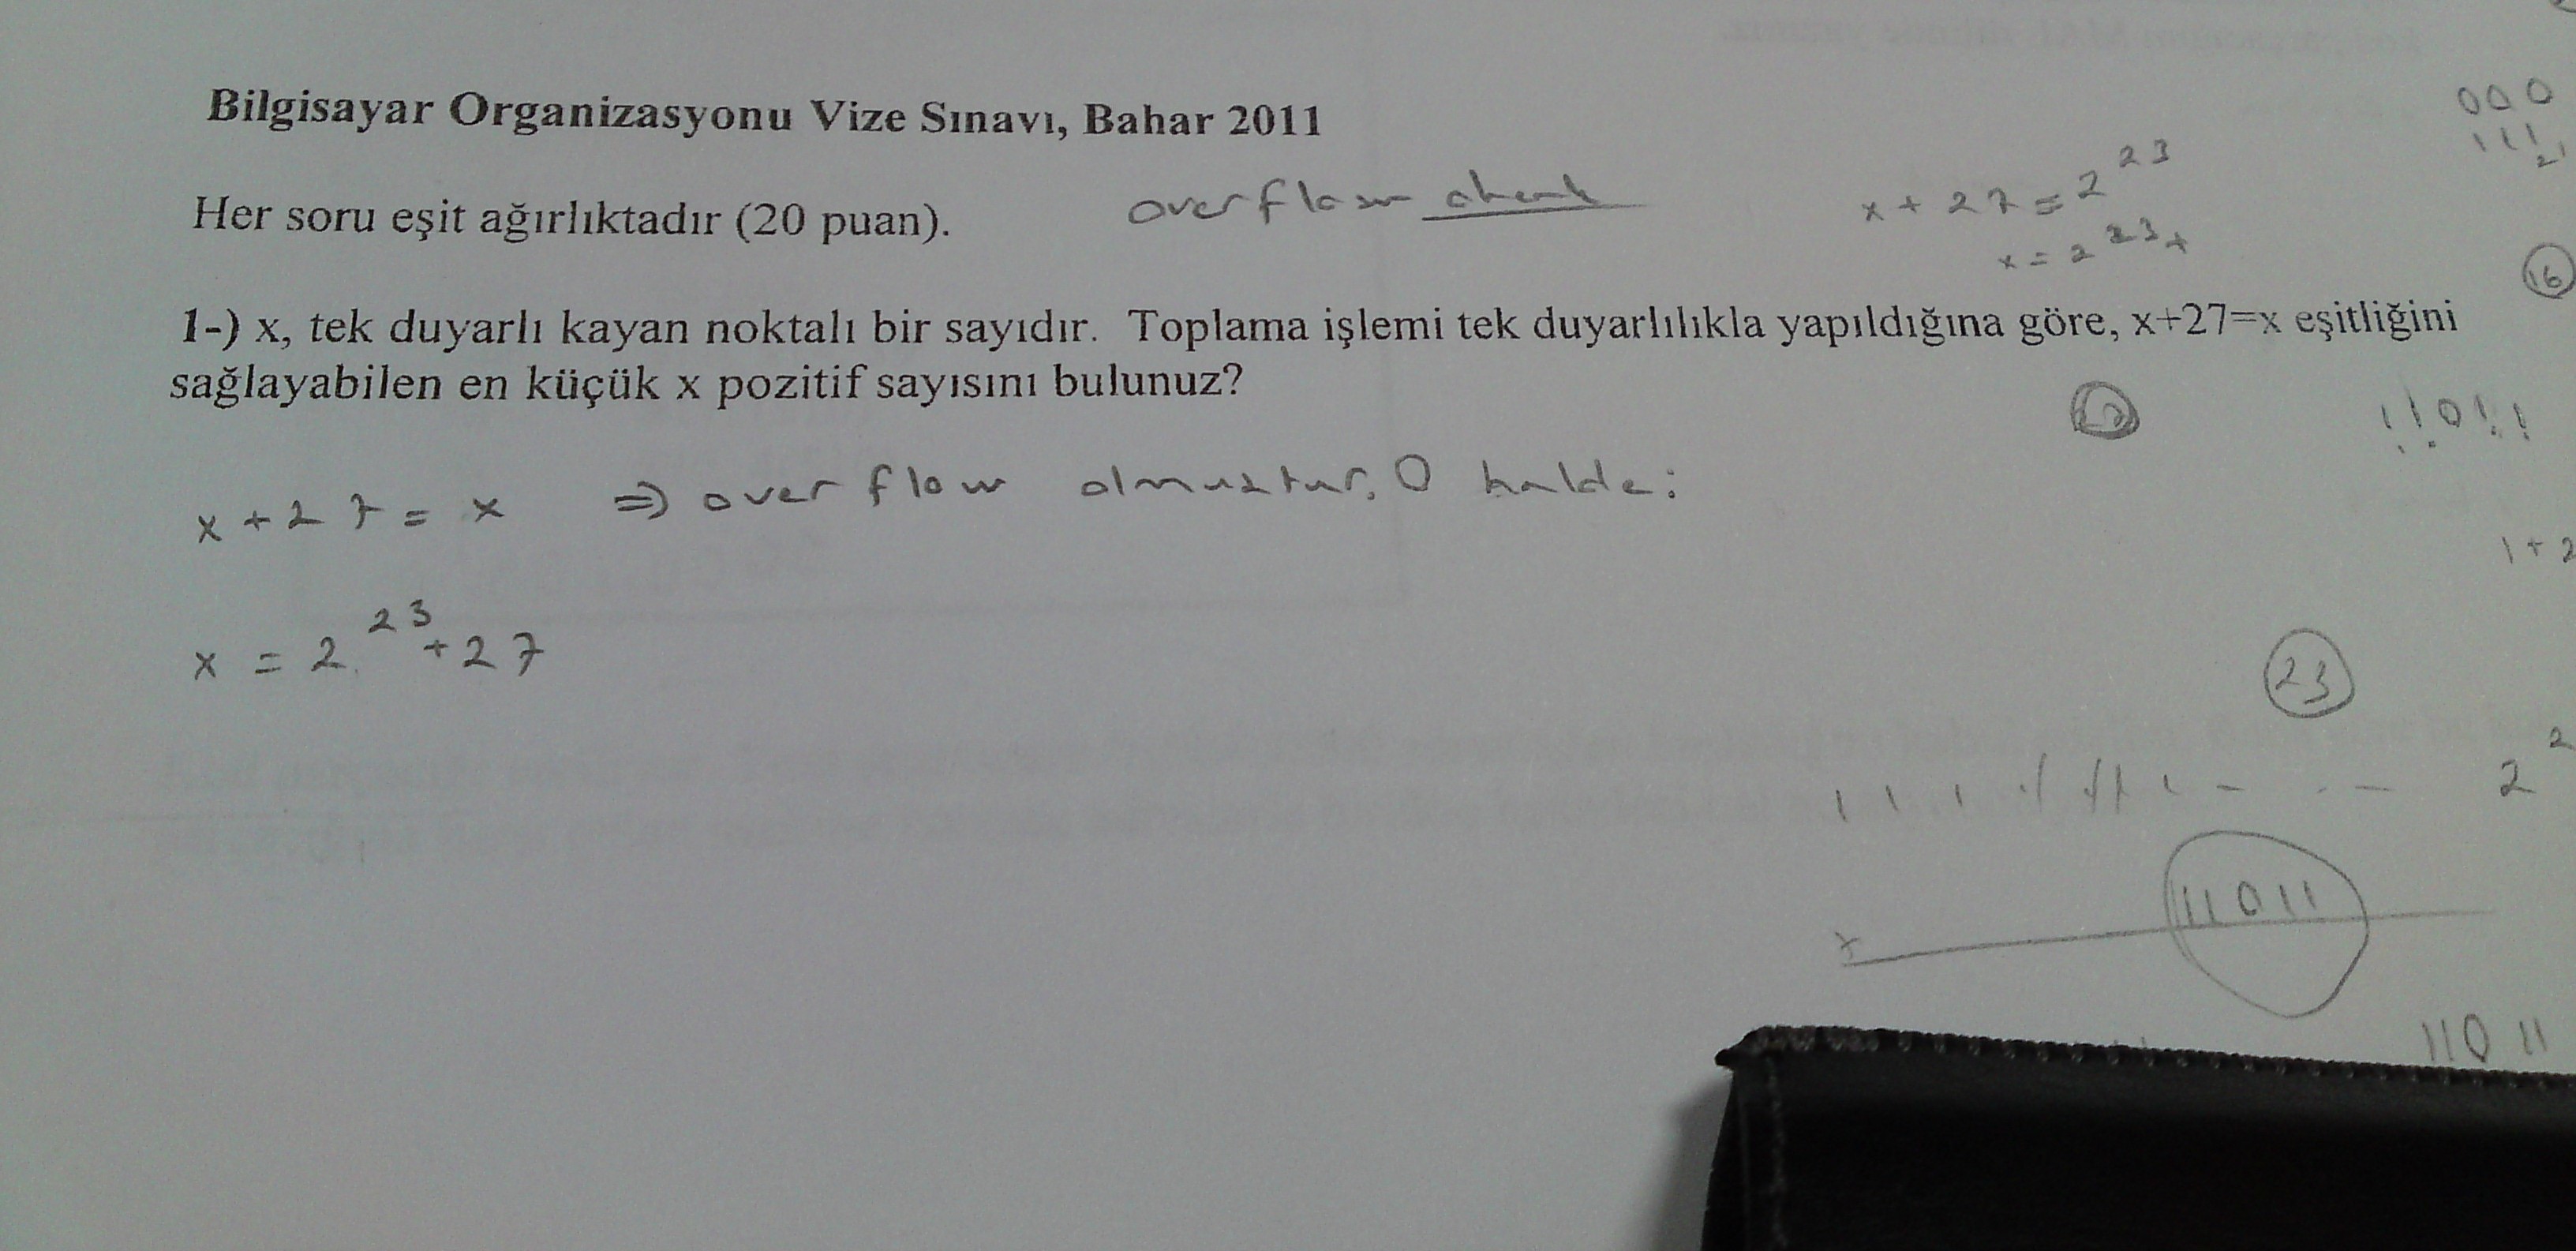 Bilgisayar Organizasyonu Vize Sınavı, Bahar 2011
000
111
21
Her soru eşit ağırlıktadır (20 puan).
overflow
x + 27 = 2^23
x = 2^23 +
16
1-) x, tek duyarlı kayan noktalı bir sayıdır. Toplama işlemi tek duyarlılıkla yapıldığına göre, x+27=x eşitliğini
sağlayabilen en küçük x pozitif sayısını bulunuz?
11011
x + 27 = x ⇒ over flow olmuştur. O halde:
1 + 2
x = 2^23 + 27
23
2^2
11011
+
11011